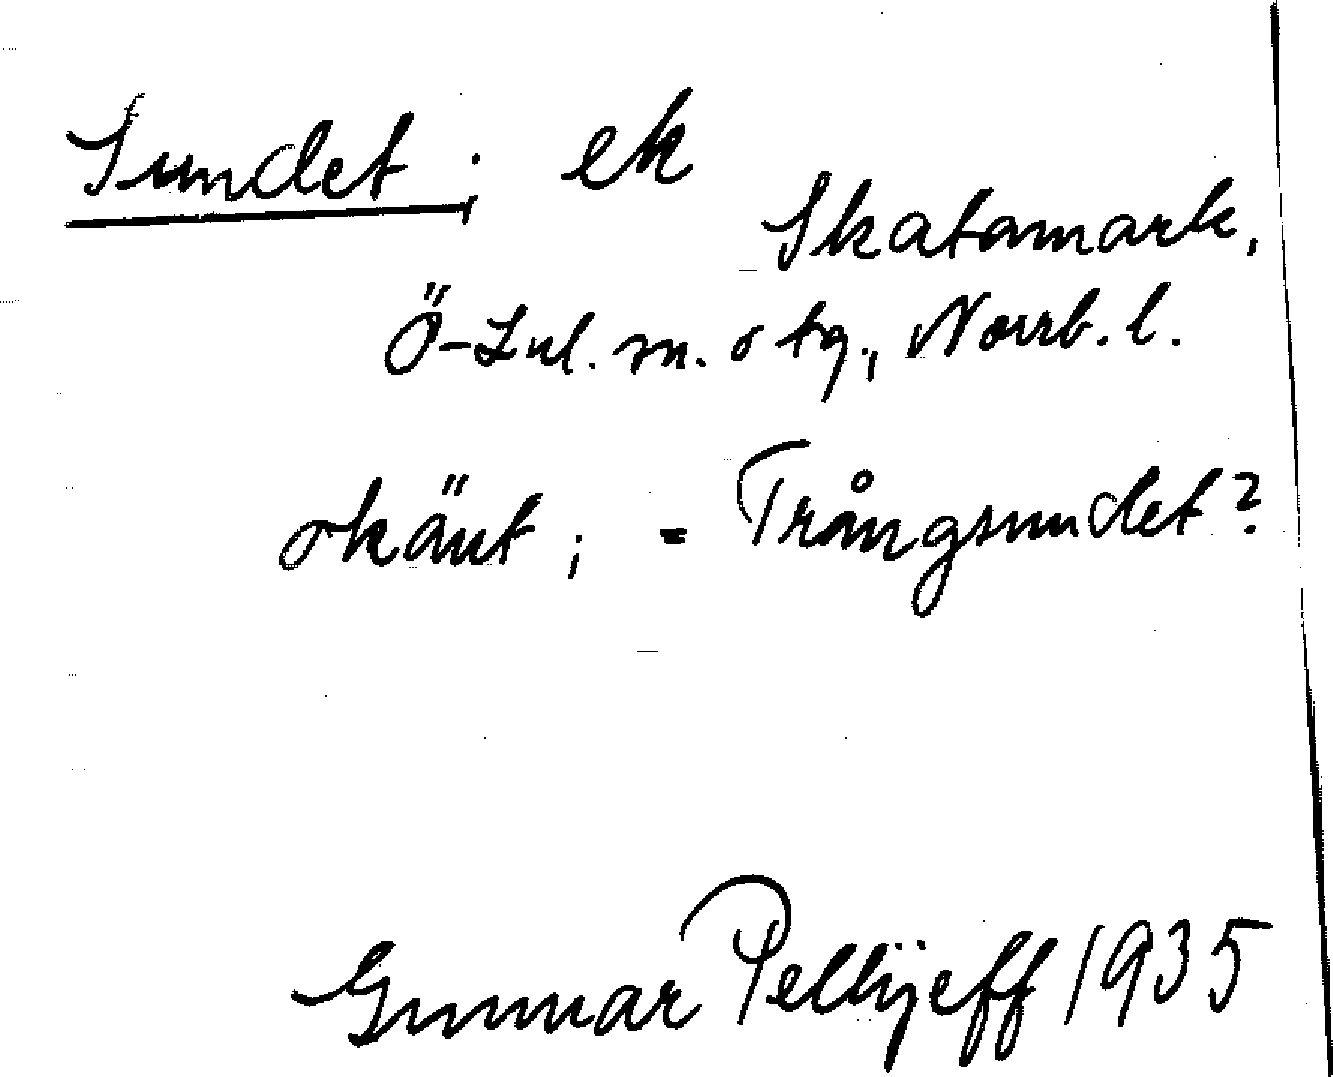 Sundet; ek
Skatamark,
Ö-Lul. m. o tg., Norrb. l.
okänt; = Trångsundet?
Gunnar Pellijeff 1935